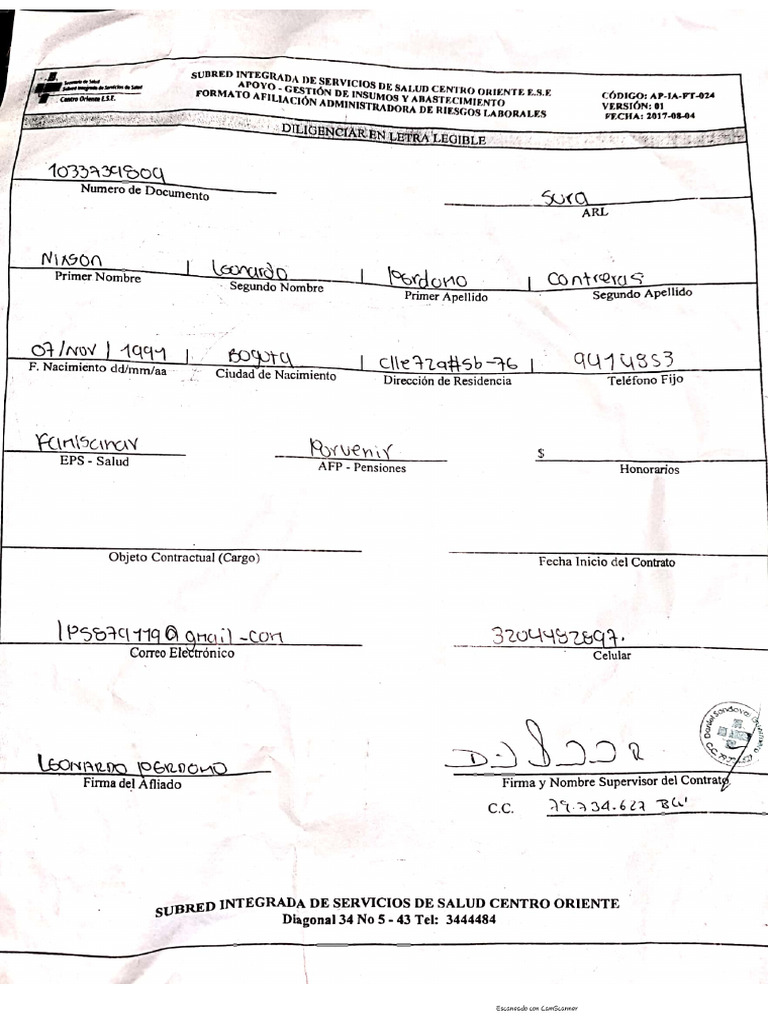 Secretaría de Salud
Subred Integrada de Servicios de Salud
Centro Oriente E.S.E.
SUBRED INTEGRADA DE SERVICIOS DE SALUD CENTRO ORIENTE E.S.E
APOYO - GESTIÓN DE INSUMOS Y ABASTECIMIENTO
FORMATO AFILIACIÓN ADMINISTRADORA DE RIESGOS LABORALES
CÓDIGO: AP-IA-FT-024
VERSIÓN: 01
FECHA: 2017-08-04
DILIGENCIAR EN LETRA LEGIBLE
1033739809 Sura
Numero de Documento ARL
Nixson | Leonardo | Perdomo | Contreras
Primer Nombre Segundo Nombre Primer Apellido Segundo Apellido
07/Nov/1991 | Bogota | Clle72a#5b-76 | 9414853
F. Nacimiento dd/mm/aa Ciudad de Nacimiento Dirección de Residencia Teléfono Fijo
Famisanar Porvenir $
EPS - Salud AFP - Pensiones Honorarios
Objeto Contractual (Cargo) Fecha Inicio del Contrato
lPS879119@gmail-com 3204482897.
Correo Electrónico Celular
LEONARDO PERDOMO
Firma del Afliado Firma y Nombre Supervisor del Contrato
C.C. 79.734.627 BG'
Daniel Sandoval
SUBRED INTEGRADA DE SERVICIOS DE SALUD CENTRO ORIENTE
Diagonal 34 No 5 - 43 Tel: 3444484
Escaneado con CamScanner